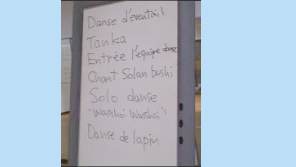 Danse d'éventail
Tanka
Entrée l'équipe danse
Chant Solan bushi
Solo danse
"Wasshoi Wasshoi"
Danse de lapin